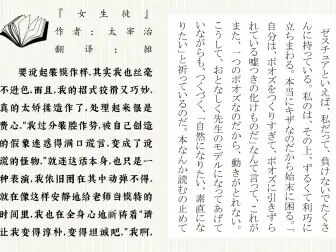 『女生徒』
作者：太宰治
翻译：雒
要说起装模作样，其实我也丝毫
不逊色，而且，我的招式狡猾又巧妙，
真的太矫揉造作了，处理起来很是
费心。“我过分装腔作势，被自己创造
的假象迷惑得满口谎言，变成了说
谎的怪物。”就连这话本身，也只是一
种表演，我依旧困在其中动弹不得。
就在像这样安静地给老师当模特的
时间里，我也在全身心地祈祷着“请
让我变得淳朴，变得坦诚吧。”我啊，
ゼスチュアといえば、私だって、負けないでたさ
んに持っている。私のは、その上、ずるくて利巧に
立ちまわる。本当にキザなのだから始末に困る。「
自分は、ポオズをつくりすぎて、ポオズに引きずら
れている嘘つきの化けものだ」なんて言って、これが
また、一つのポオズなのだから、動きがとれない。
こうして、おとなしく先生のモデルになってあげて
いながらも、つくづく、「自然になりたい、素直にな
りたい」と祈っているのだ。本なんか読むの止めて